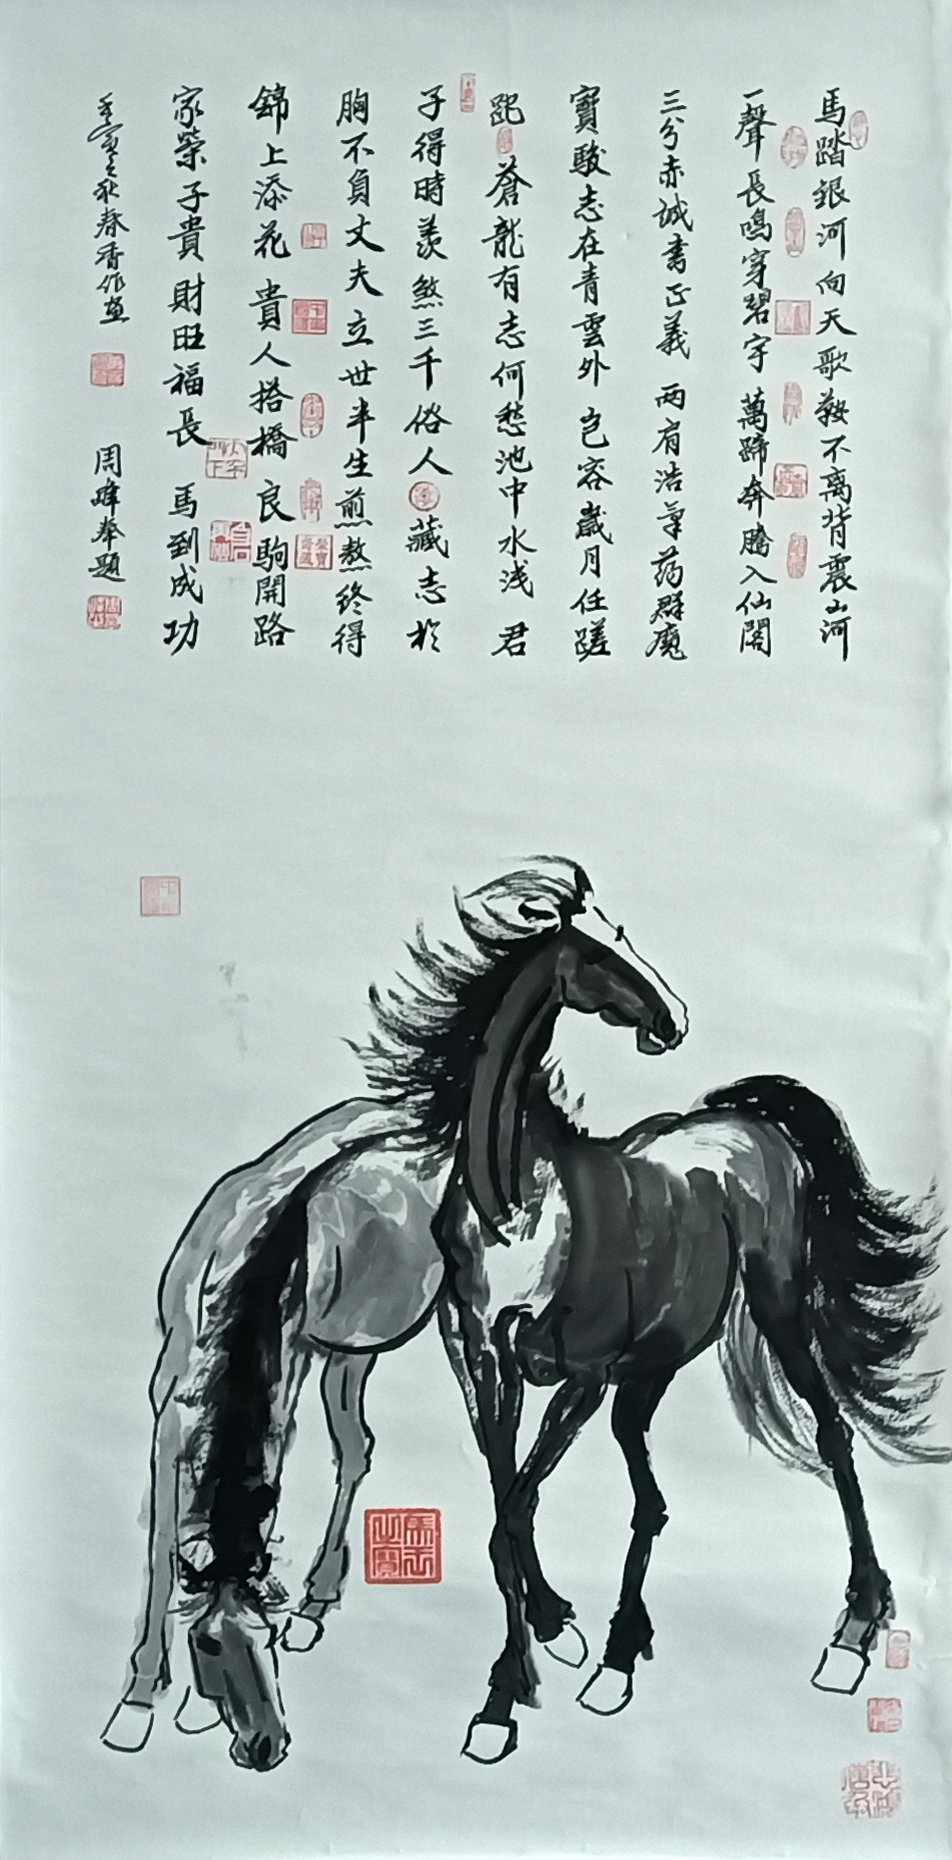 馬踏銀河向天歌鞍不离背震山河
一聲長鳴穿碧宇 萬蹄奔騰入仙閣
三分赤誠書正義 两肩浩氣蕩群魔
寶駿志在青雲外 岂容歲月任蹉
跎 蒼龍有志何愁池中水浅 君
子得時羨煞三千俗人 藏志於
胸不負丈夫立世半生煎熬终得
錦上添花 貴人搭橋 良駒開路
家榮子貴 財旺福長 馬到成功
秋春香作画
周峰奉題